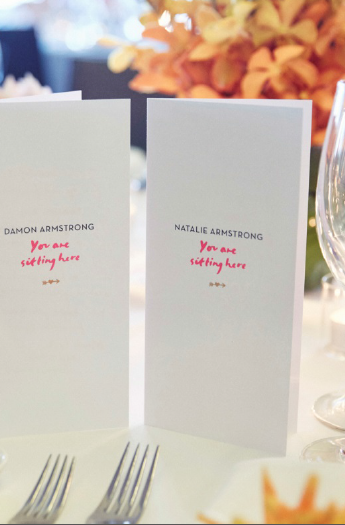 DAMON ARMSTRONG
You are
sitting here
NATALIE ARMSTRONG
You are
sitting here